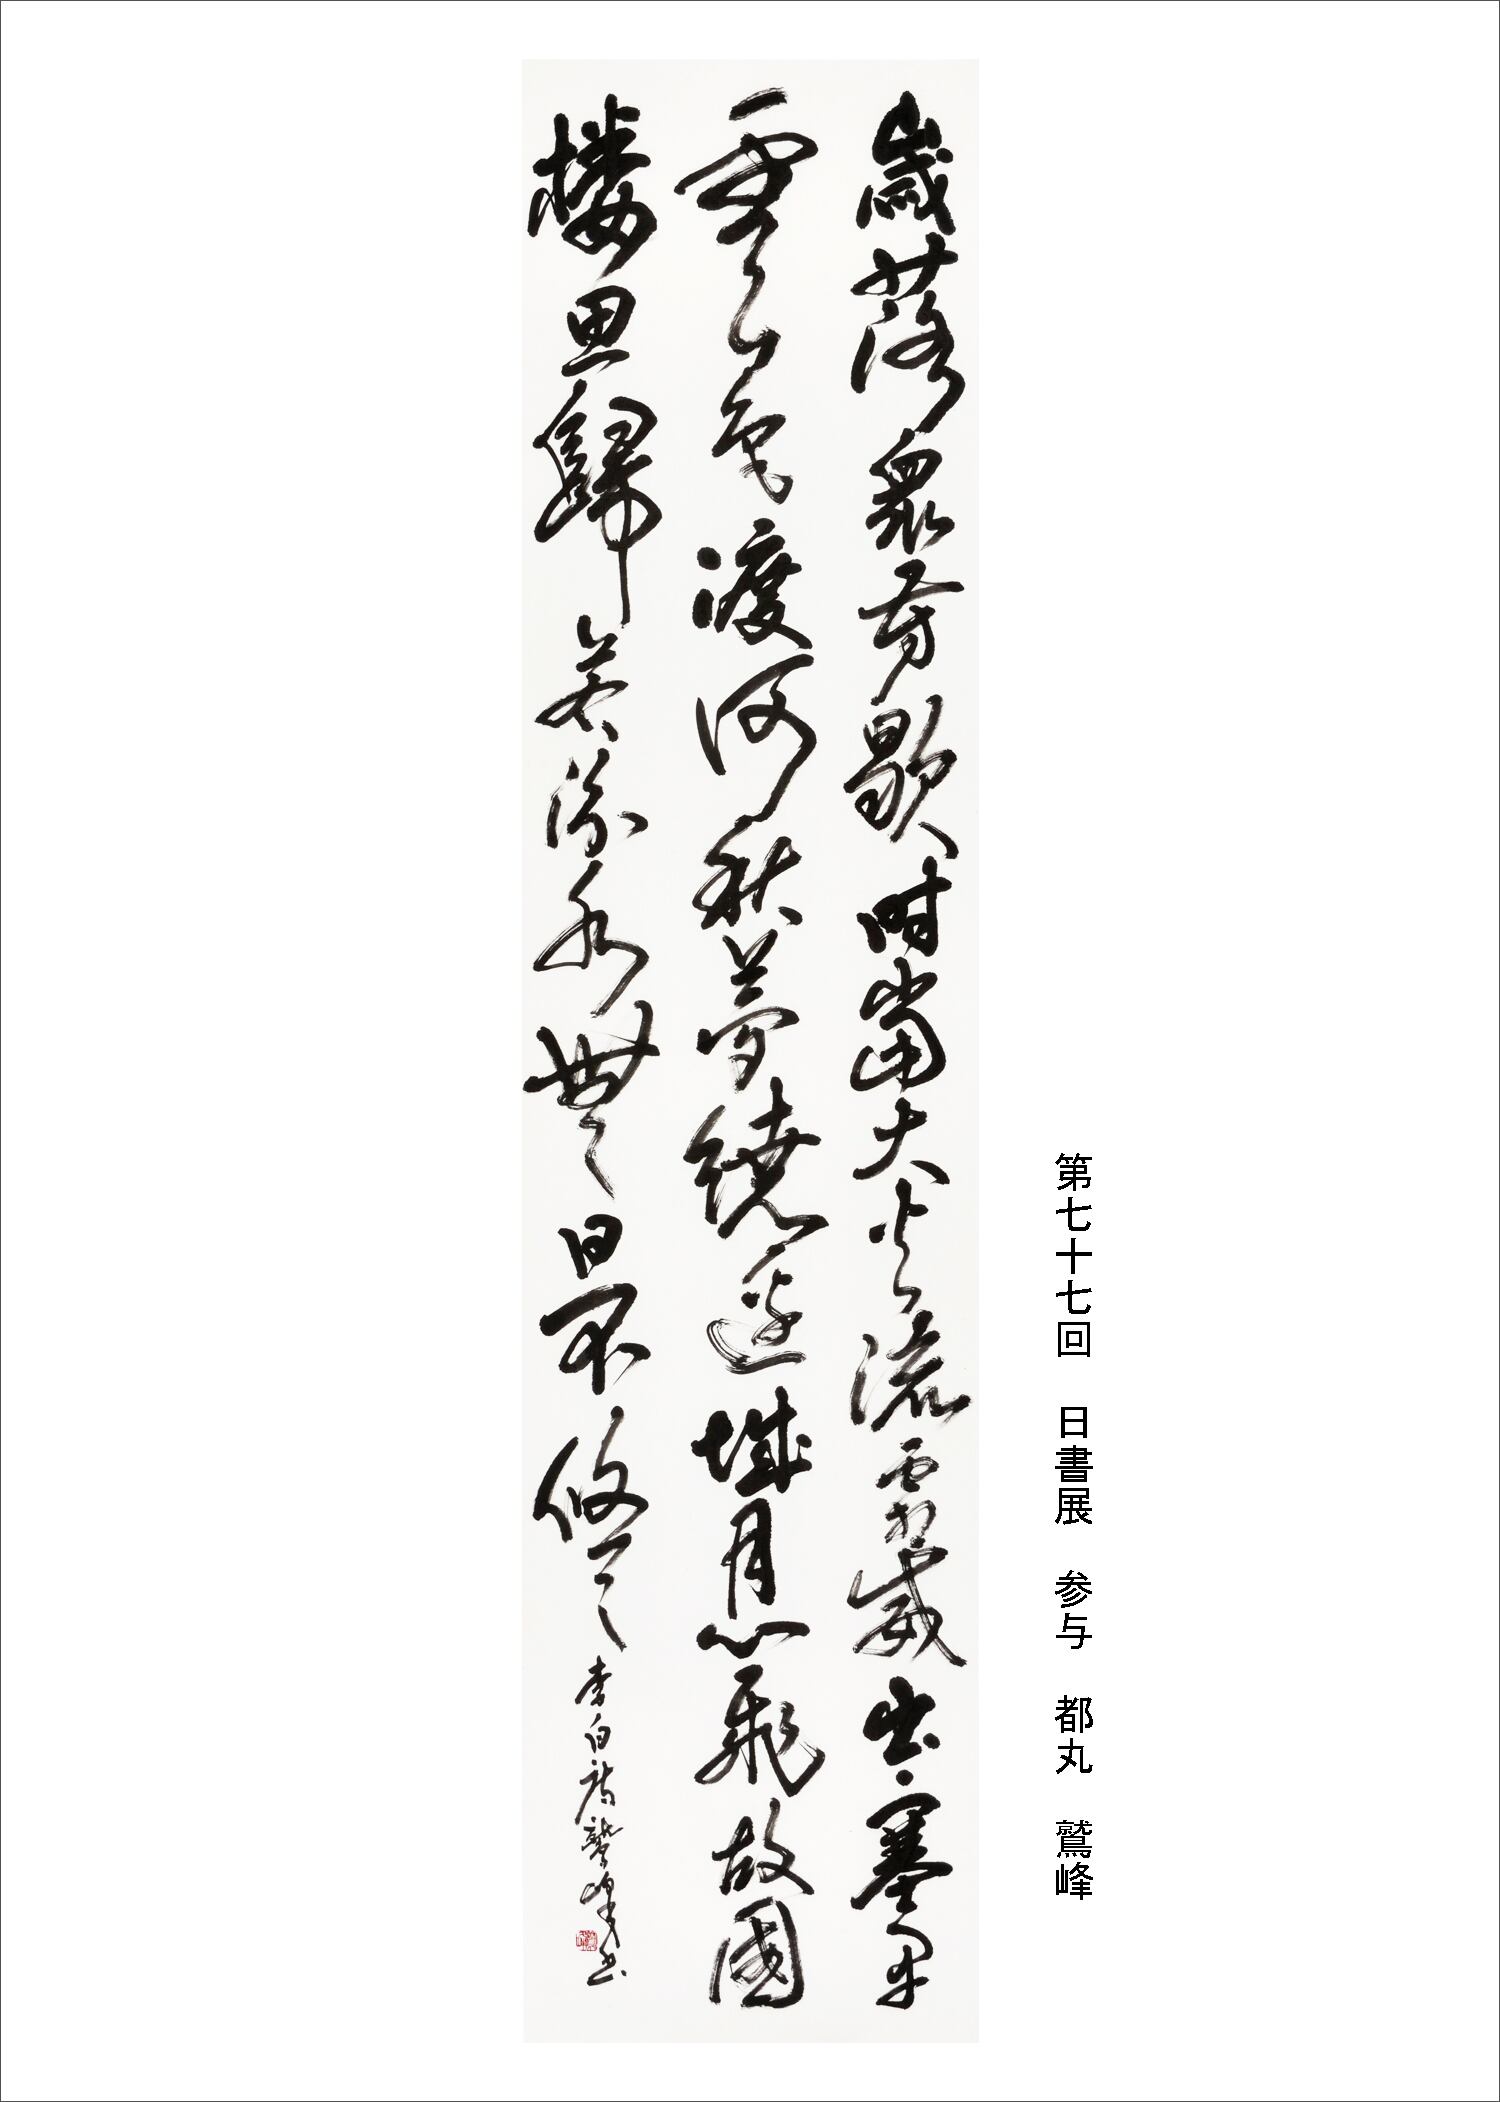 第七十七回　日書展　参与　都丸　鷲峰
歳落衆芳歇時當大火流霜威出塞早
雲色渡河秋夢繞邊城月心飛故國
楼思歸若汾水無日不悠々 李白詩鷲峰書